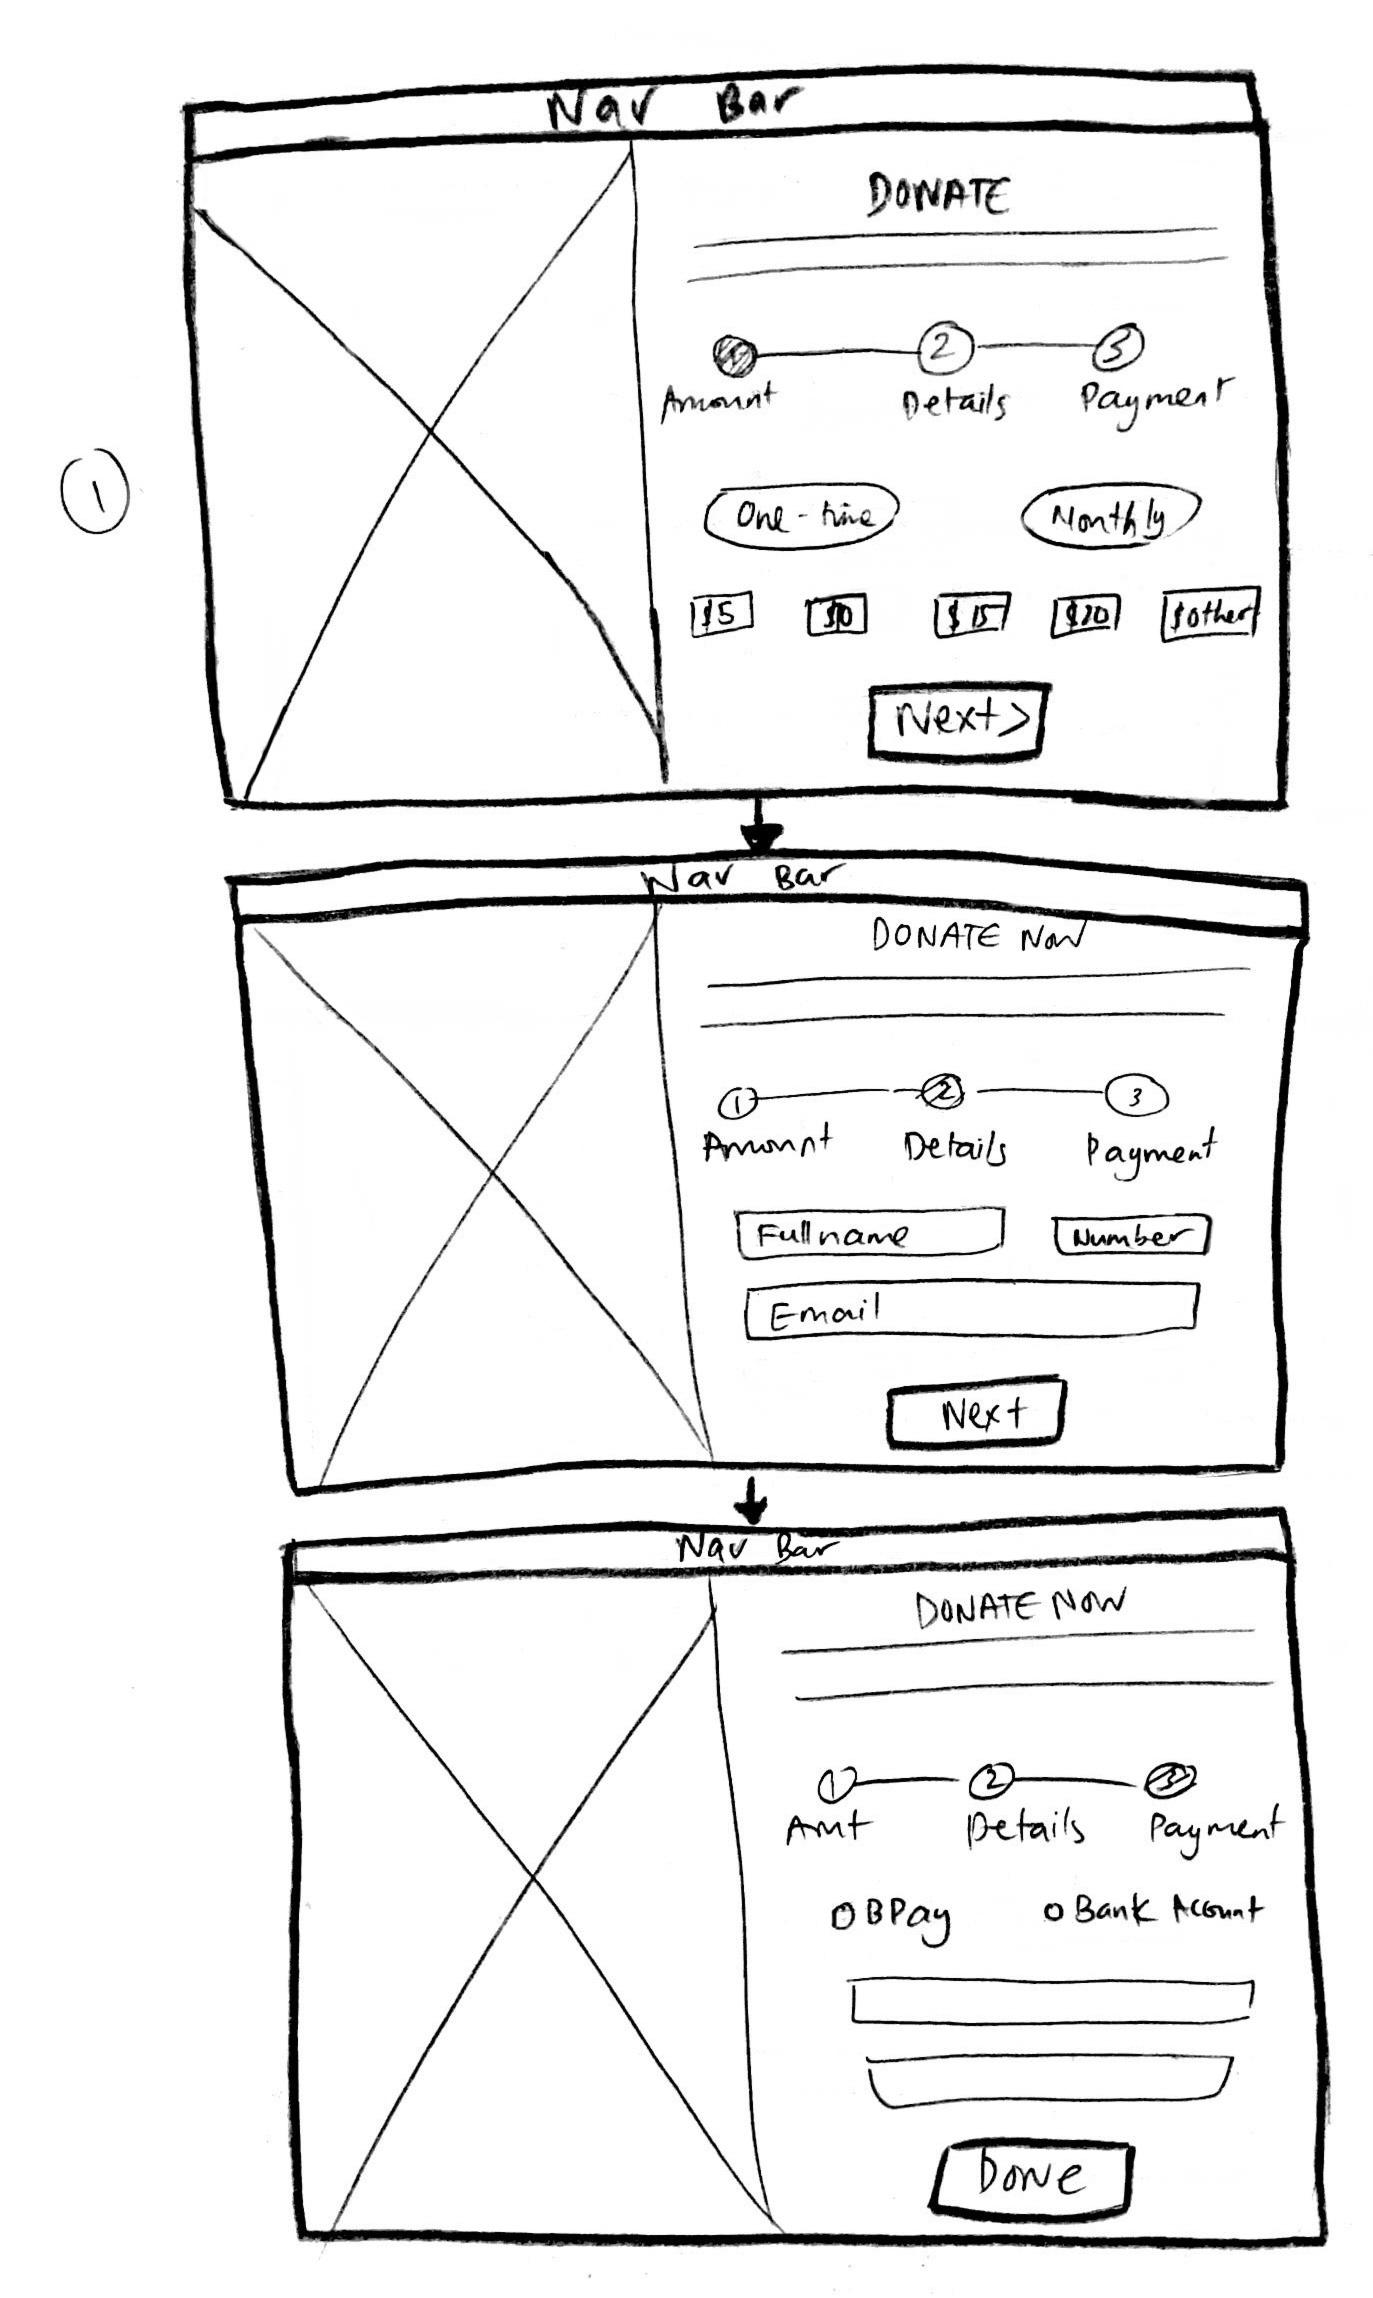 Nav Bar
DONATE
1 2 3
Amount Details Payment
1
One-time Monthly
$5 $10 $15 $20 $other
Next>
Nav Bar
DONATE NOW
1 2 3
Amount Details Payment
Fullname Number
Email
Next
Nav Bar
DONATE NOW
1 2 3
Amt Details Payment
BPay Bank Account
Done